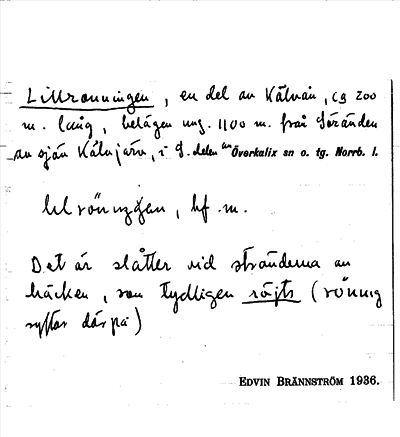 Lillrönningen, en del av Kälvån, ca 200
m. lång, belägen ung. 1100 m. från Söränden
av sjön Kälvjärv, i S. delen av Överkalix sn o. tg. Norrb. l.
bf. m.
Det är slåtter vid stränderna av
bäcken, som tydligen röjts (rönning
syftar därpå)
EDVIN BRÄNNSTRÖM 1936.